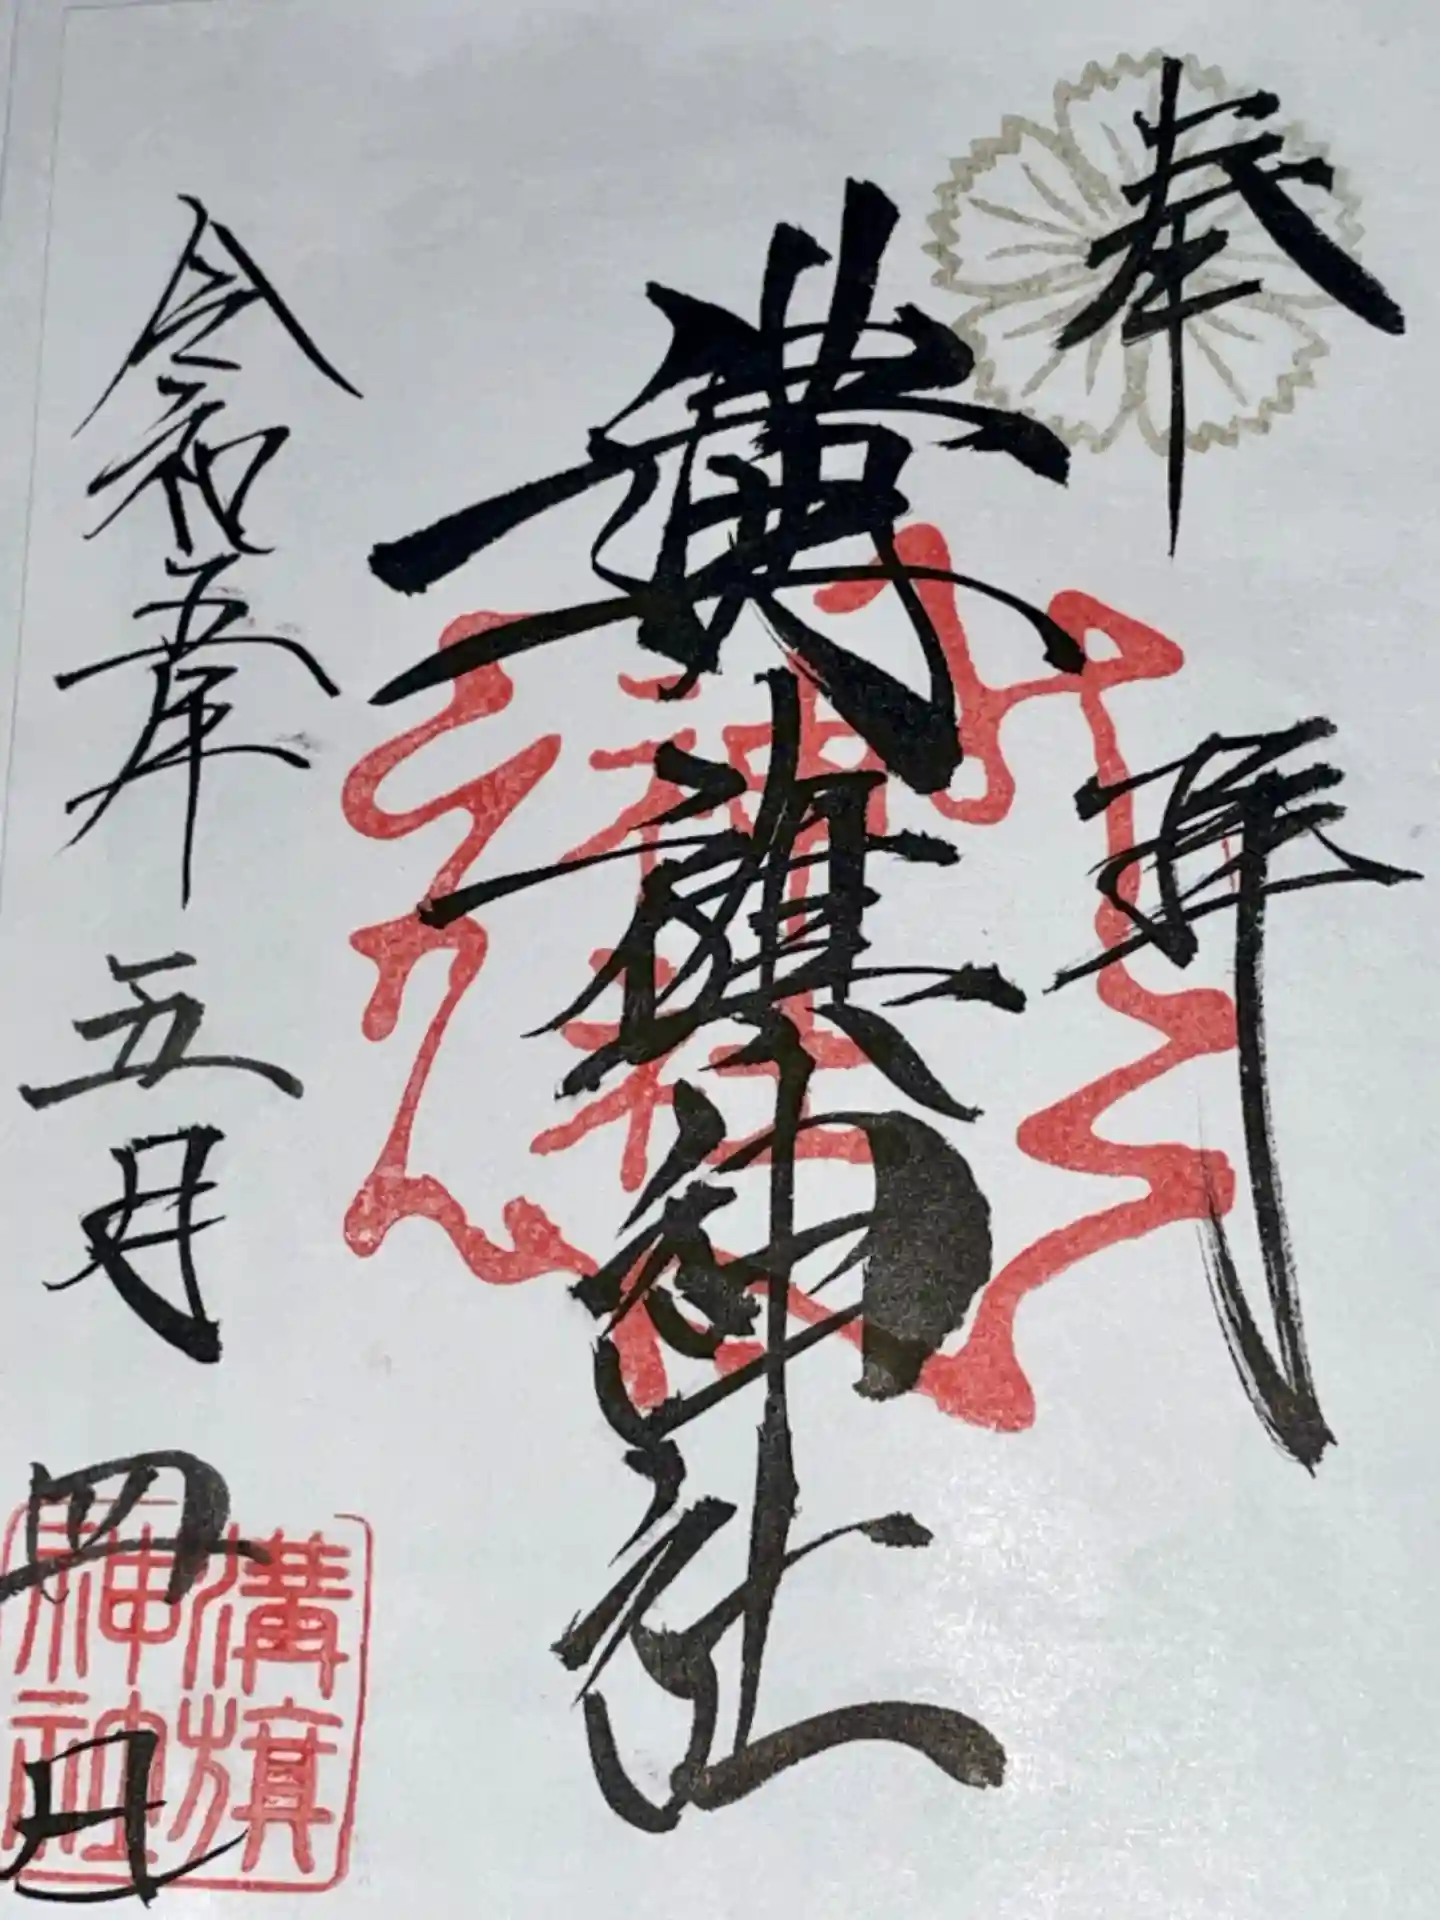 奉拝
溝旗神社
令和五年五月四日
神社
溝旗
神社